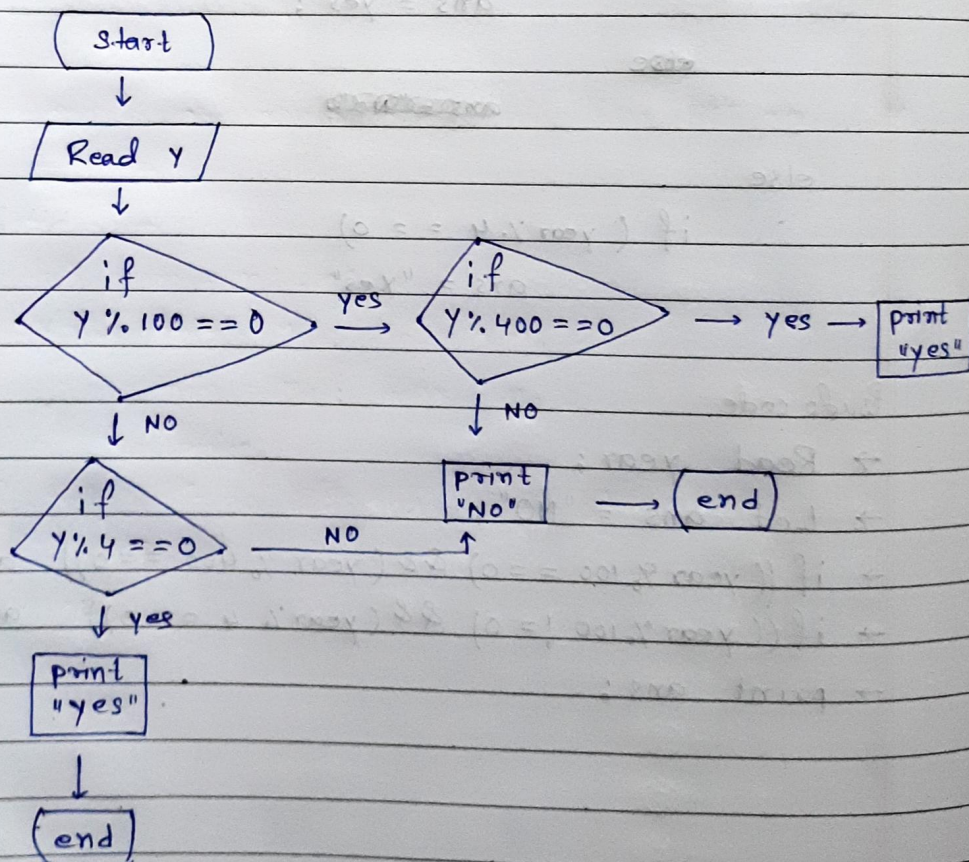 Start
Read Y
if
Y % 100 == 0
yes
if
Y % 400 == 0
yes
print
"yes"
NO
NO
if
Y % 4 == 0
NO
print
"NO"
end
yes
print
"yes"
end